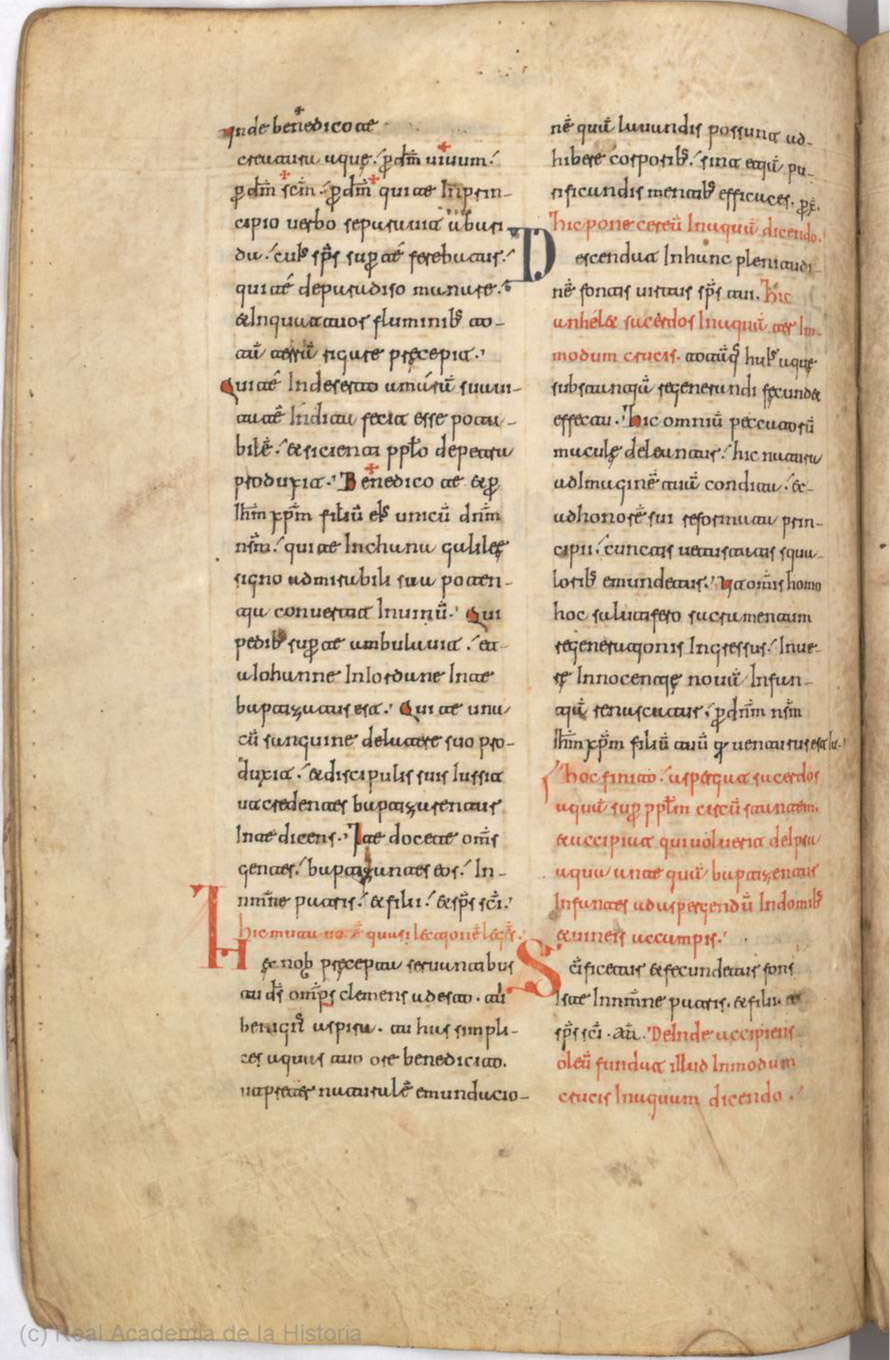 Inde benedico te
creatura aque. ꝑ dm̄ uiuum.
ꝑ dm̄ scm̄. ꝑ dm̄ qui te In prin-
cipio uerbo separauit ab ari
da. cuIs sp̄s suꝑ te ferebatur.
qui te de paradiso manare.
et In quattuor fluminib to-
tā terrā rigare precepit.
Qui te In deserto amarā suaui-
tate Indita fecit esse pota-
bilē. et sicienti pplo de petra
produxit. Benedico te et ꝑ
Ihm̄ xpm̄ filiū eIs unicū dnm̄
nsm̄. qui te In chana galileę
signo admirabili sua poten-
tia conuertit In uinū. Qui
pedib suꝑ te ambulauit. et
a Iohanne In Iordane In te
baptizatus est. Qui te una
cū sanguine de latere suo pro-
duxit. et discipulis suis Iussit
ut credentes baptizarentur
In te dicens. Ite docete om̄s
gentes. baptizantes eos. In
nmne patris. et filii. et sp̄s sci.
Hic muta
Hęc nob pręcepta seruantibus
tu ds̄ omps clemens adesto. tu
benign aspira. tu has simpli-
ces aquas tuo ore benedicito.
ut preter naturalē emundacio-
nē quā lauandis possunt ad-
hibere corporib. sint etiā pu-
rificandis mentib efficaces. ꝑ
Hic pone cereū In aquā dicendo.
Descendat In hunc plenitudi-
nē fontis uirtus sp̄s tui. Hic
anhelet sacerdos In aquā ter In
modum crucis. totāq huIs aque
substantiā regenerandi fecundet
effectu. Hic omniū peccatorū
macule deleantur. hic natura
ad Imaginē tuā condita. et
ad honorē sui reformata prin-
cipii. cunctis uetustatis squa-
lorib emundetur. ut omīs homo
hoc salutifero sacramentum
regenerationis Ingressus. In ue-
re Innocentie nouā Infan-
tiā renascatur. ꝑ dnm̄ nsm̄
Ihm̄ xpm̄ filiū tuū qui uenturus est
Hoc finito. aspergat sacerdos
aquā suꝑ pplm̄ circūstantem.
et accipiat qui uoluerit de Ipsa
aqua ante quā baptizentur
Infantes ad aspergendū In domib
et uineis uel campis.
Scificetur et fecundetur fons
Iste In nmne patris. et filii. et
sp̄s sci. am̄. DeInde accipiens
oleū fundat illud In modum
crucis In aquam dicendo.